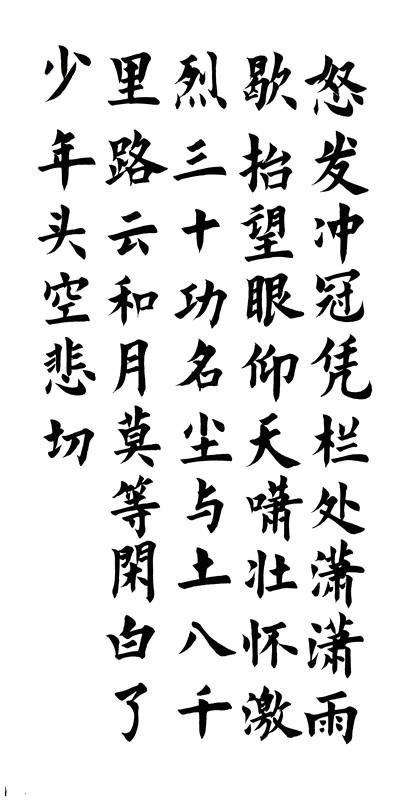 怒发冲冠凭栏处潇潇雨
歇抬望眼仰天啸壮怀激
烈三十功名尘与土八千
里路云和月莫等閑白了
少年头空悲切